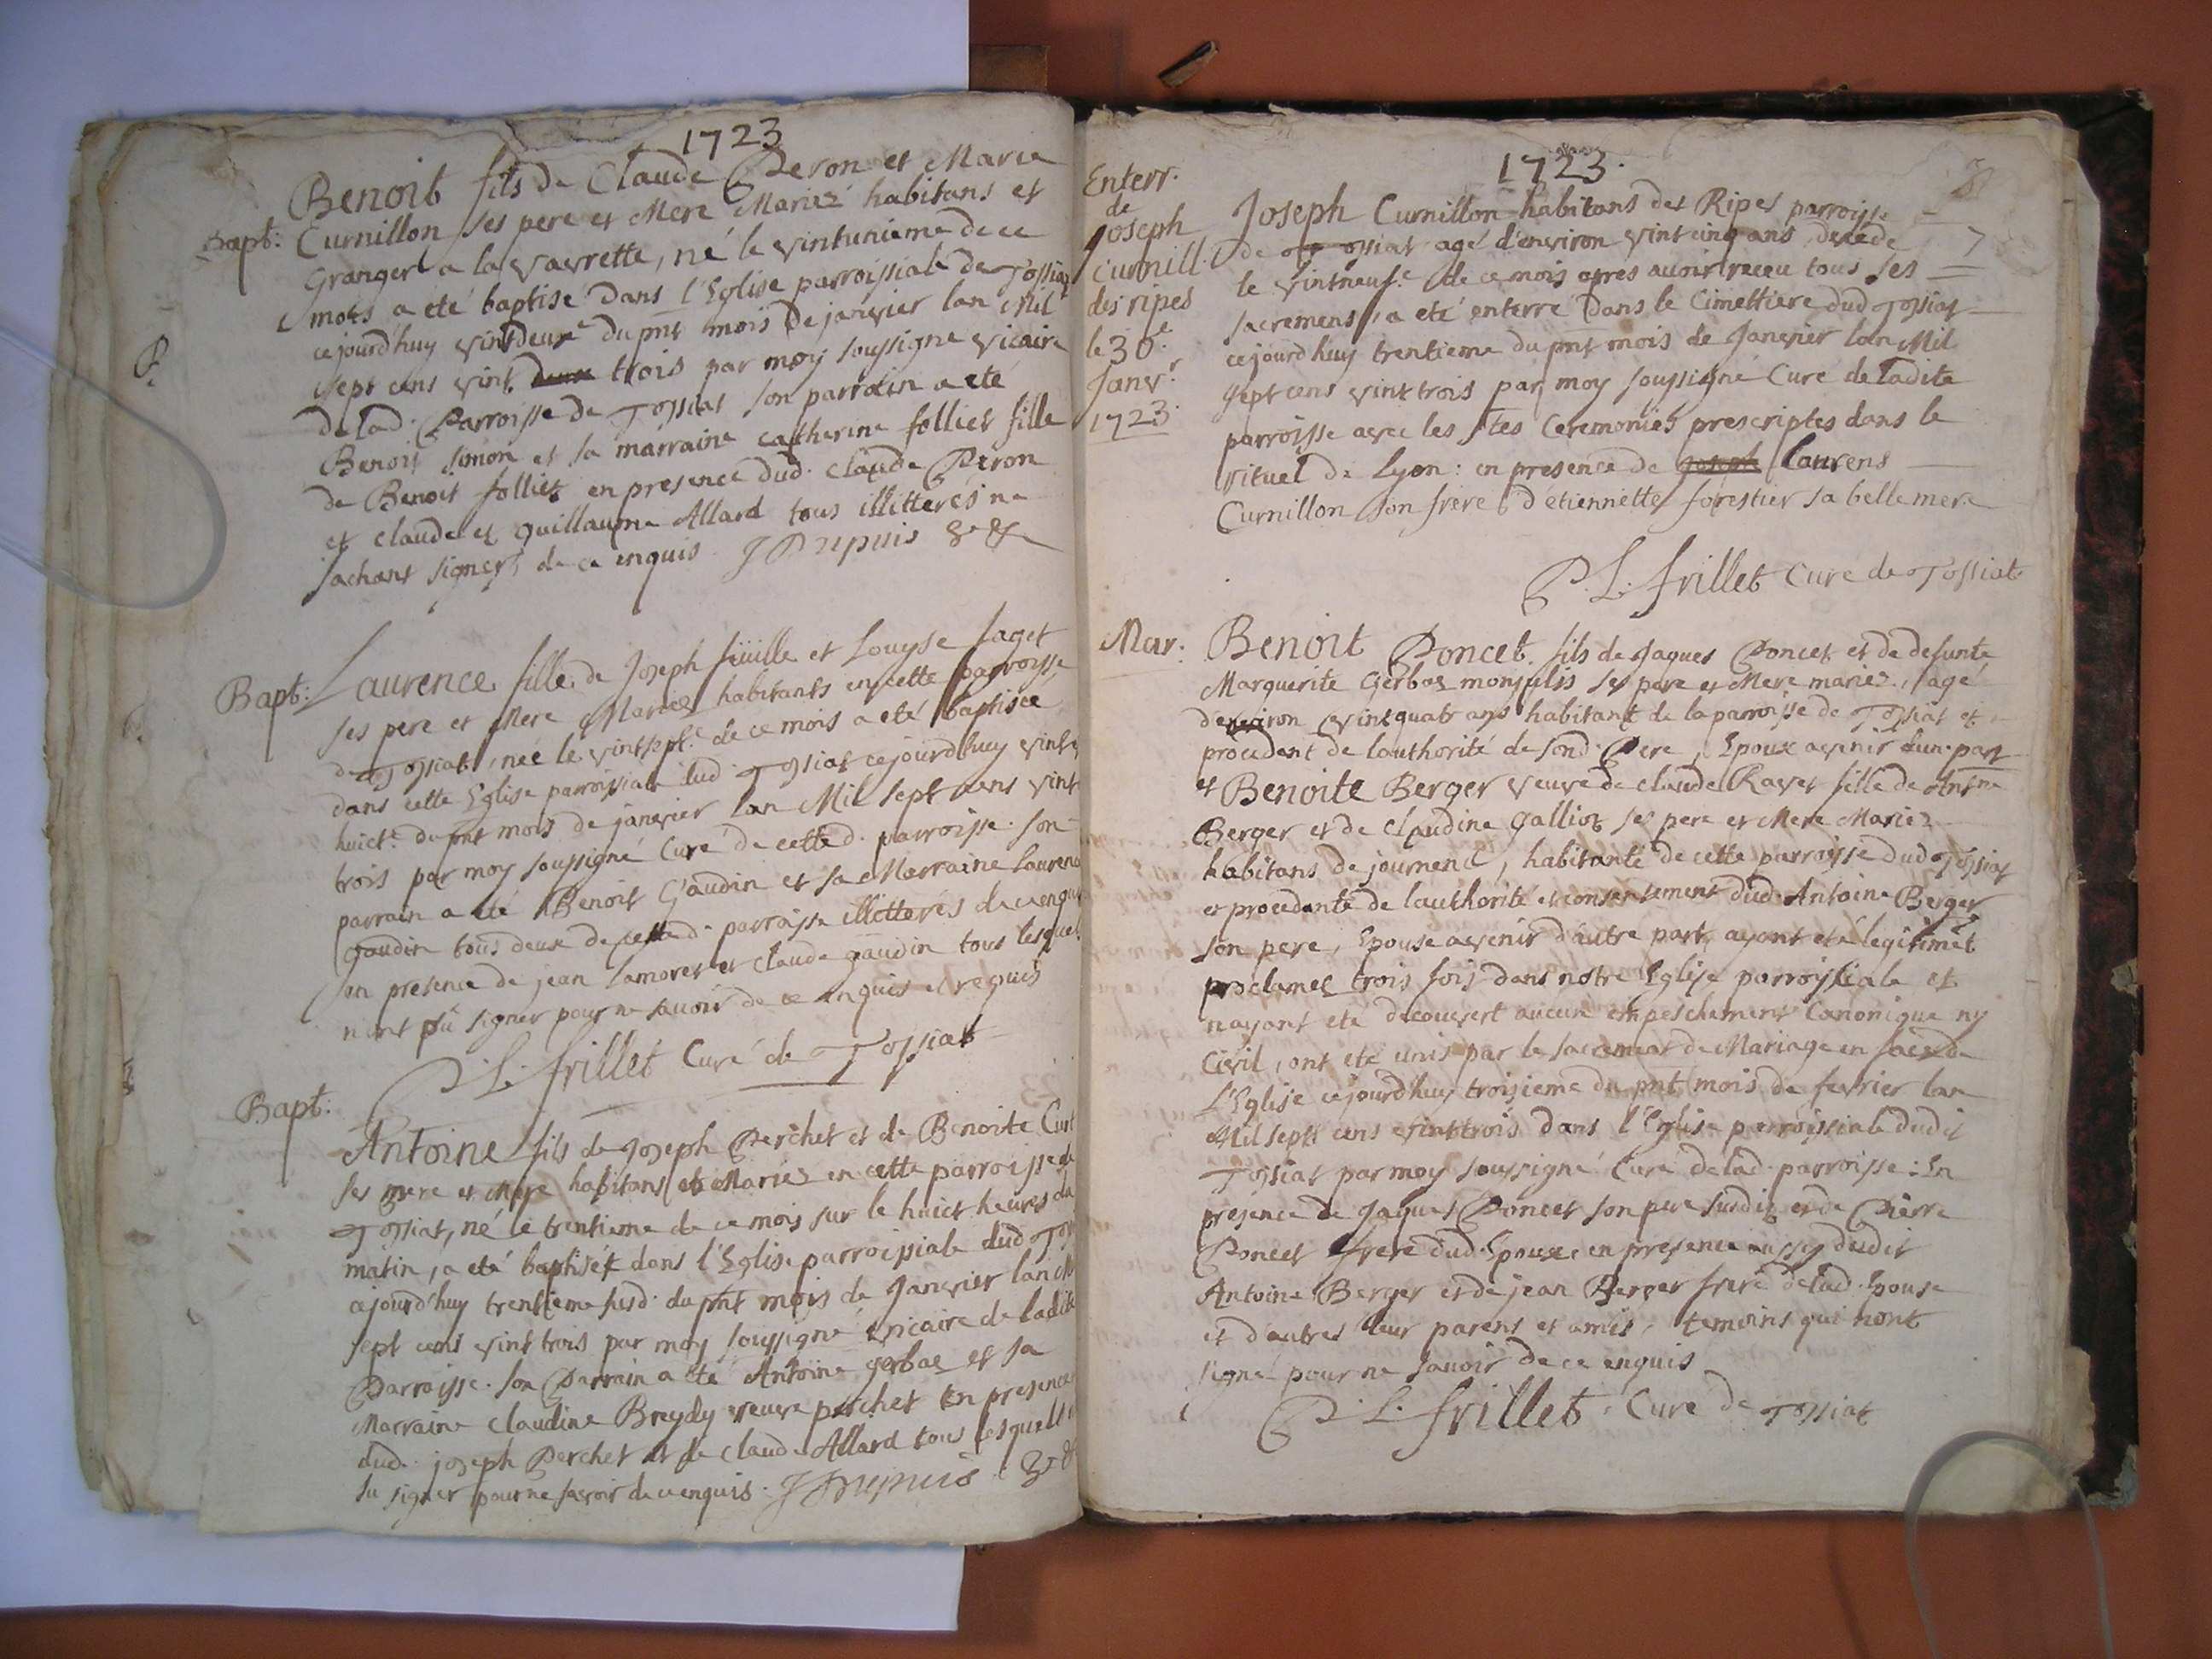 1723
Benoit fils de Claude Peron et Marie
Bapt: Curnillon ses pere et Mere Mariez habitans et
Granger a la vavrette, né le vintunieme de ce
mois a eté baptisé dans l'Eglise parroissiale de Tossiat
cejourd'huy vintdeux.e du pnt mois de janvier lan Mil
sept cens vint deux trois par moy soussigné vicaire
de lad. Parroisse de Tossiat son parrain a eté
Benoit simon et sa marraine catherine folliet fille
de Benoit folliet en presence dud. claude Peron
et claude et guillaume Allard tous illitterés ne
sachant signer, de ce enquis. J Dupuis
Laurence fille de Joseph et Louyse saget
Bapt: ses pere et Mere Mariez habitants en cette parroisse
de Tossiat, neé le vintsept.e de ce mois a eté baptisée
dans cette Eglise parroissiale dud. Tossiat cejourdhuy vint
huict.e du pnt mois de janvier lan Mil sept cens vint
trois par moy soussigné Curé de cette d. parroisse. son
parrain a eté Benoit Gaudin et sa Marraine Laurence
gaudin tous deux de cette d. parroisse illitterés de ce enquis
en presence de jean lamoret et claude gaudin tous lesquels
nont pu signer pour ne savoir de ce enquis et requis
P. L. frillet Curé de Tossiat
Bapt:
Antoine fils de Joseph Perchet et de Benoite
ses pere et Mere habitans et Mariez en cette parroisse de
Tossiat, né le trentieme de ce mois sur le huict heures du
matin, a eté baptisé dans l'Eglise parroissiale dud.
cejourd'huy trentieme susd. du pnt mois de Janvier lan
sept cens vint trois par moy soussigné vicaire de ladite
Parroisse. son Parrain a eté Antoine gerbas et sa
Marraine Claudine Breydy veuve perchet En presence
dud. joseph Perchet et de claude Allard tous lesquels
su signer pour ne savoir de ce enquis. J Dupuis
1723.
Enterr.
de
Joseph
curnill.
des ripes
le 30.e
Janv.r
1723.
Joseph Curnillon habitans des Ripes parroisse
de Tossiat agé d'environ vintcinq ans, decedé
le vintneuf.e de ce mois apres avoir receu tous ses
sacremens, a eté enterré dans le Cimettiere dud Tossiat
cejourdhuy trentieme du pnt mois de Janvier lan Mil
sept cens vint trois par moy soussigné Curé de ladite
parroisse avec les stes Ceremonies prescriptes dans le
rituel de Lyon: en presence de joseph laurens
Curnillon son frere d'etiennette forestier sa belle mere
P. L. frillet Curé de Tossiat
Mar: Benoit Poncet fils de Jaques Poncet et de defunte
Marguerite Gerbas ses pere et Mere mariez, agé
d'environ vintquatr ans habitant de la parroisse de Tossiat et
procedant de lauthorité de sond. Pere, Epoux avenir dune part
et Benoite Berger veuve de claude Ravet fille de Ant.ne
Berger et de Claudine galliot ses pere et Mere Mariez
habitans de journend, habitante de cette parroisse dud Tossiat
et procedante de lauthorité et consentement dud. Antoine Berger
son pere, Epouse avenir d'autre part, ayant eté legitimet
proclamez trois fois dans notre Eglise parroissiale et
nayant eté decouvert aucun empeschement Canonique ny
Civil, ont eté unis par le sacrement de Mariage en face de
L'Eglise cejourd'huy troisieme du pnt mois de fevrier lan
Mil sept cens vinttrois dans l'Eglise parroissiale dudit
Tossiat par moy soussigné Curé de lad. parroisse: En
presence de Jaques Poncet son pere susdit et de Pierre
Poncet frere dud. Epoux en presence aussy dudit
Antoine Berger et de jean Berger frere de lad. Epouse
et d'autres leur parens et amis, temoins qui nont
signé pour ne savoir de ce enquis
P. L. frillet, Curé de Tossiat